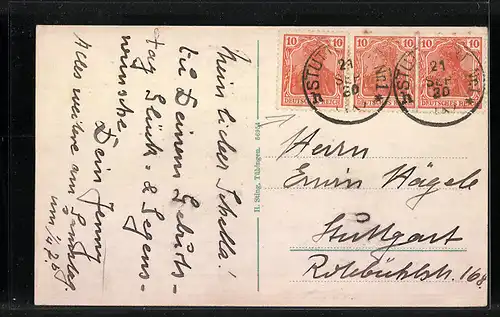 Mein lieber Schella!
Zu Deinem Geburts-
tag Glück- & Segens-
wünsche
Dein Jenny
Alles weitere am Samstag
um ½ 8
H. Sting, Tübingen.
10
10
10
DEUTSCHES REICH
DEUTSCHES REICH
DEUTSCHES REICH
STUTT
21
SEP
20
STUTT
21
SEP
20
Herrn
Erwin Hägele
Stuttgart
Rotebühlstr. 168.